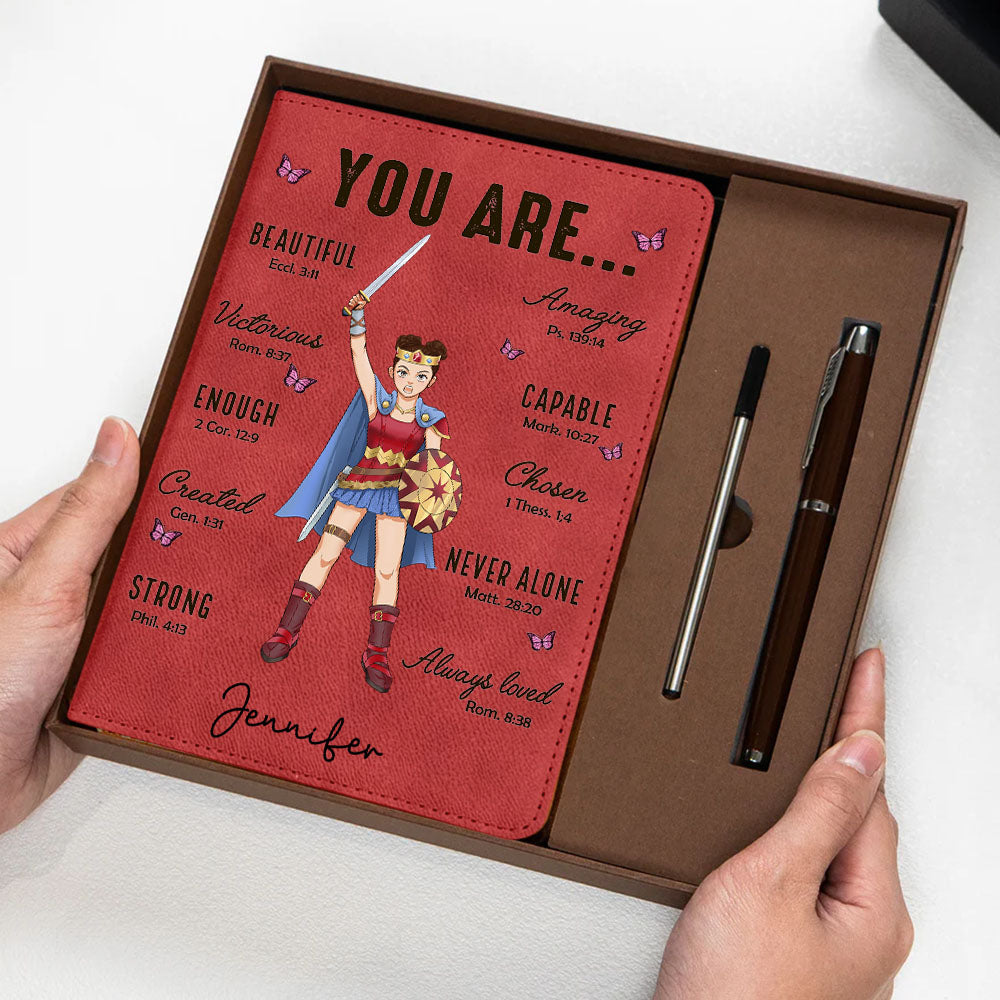 YOU ARE...
BEAUTIFUL
Eccl. 3:11
Amazing
Ps. 139:14
Victorious
Rom. 8:37
CAPABLE
Mark. 10:27
ENOUGH
2 Cor. 12:9
Chosen
1 Thess. 1:4
Created
Gen. 1:31
NEVER ALONE
Matt. 28:20
STRONG
Phil. 4:13
Always loved
Rom. 8:38
Jennifer